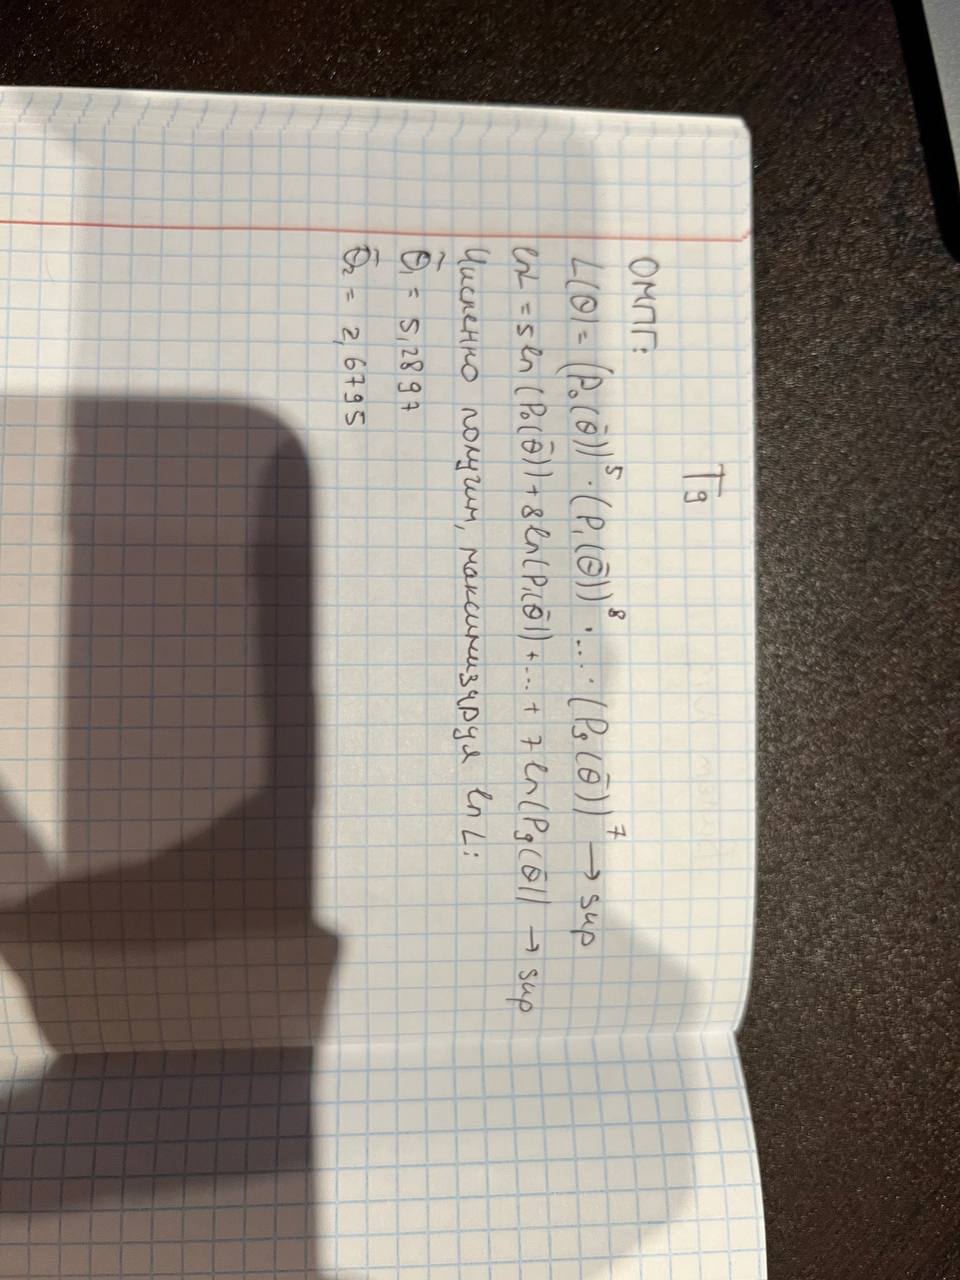 T9
ОМПГ:
L(θ) = (P₀(θ̄))⁵ · (P₁(θ̄))⁸ · ... · (P₉(θ̄))⁷ → sup
lnL = 5 ln(P₀(θ̄)) + 8 ln(P₁(θ̄)) + ... + 7 ln(P₉(θ̄)) → sup
Численно получим, максимизируя ln L:
θ̃₁ = 5,2897
θ̃₂ = 2,6795